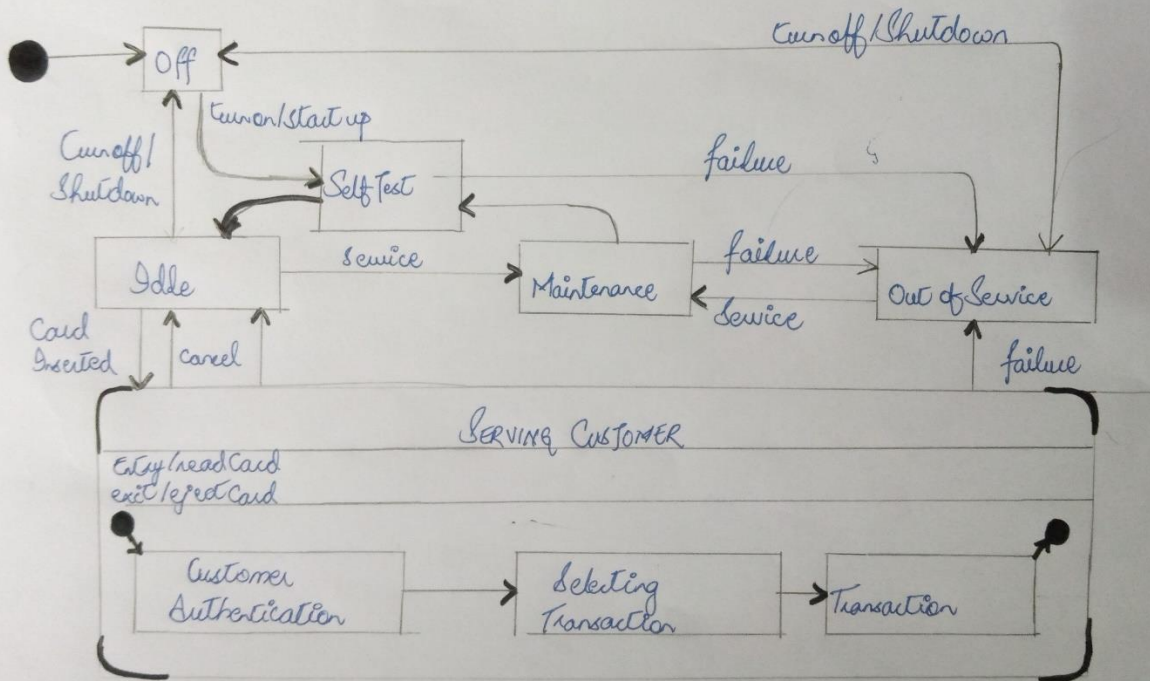 turnoff/Shutdown
Off
turnon/start up
Turnoff/
Shutdown
failure
Self Test
service
failure
Idle
Maintenance
Out of Service
Service
Card
Inserted
cancel
failure
SERVING CUSTOMER
Entry/readCard
exit/ejectCard
Customer
Authentication
Selecting
Transaction
Transaction